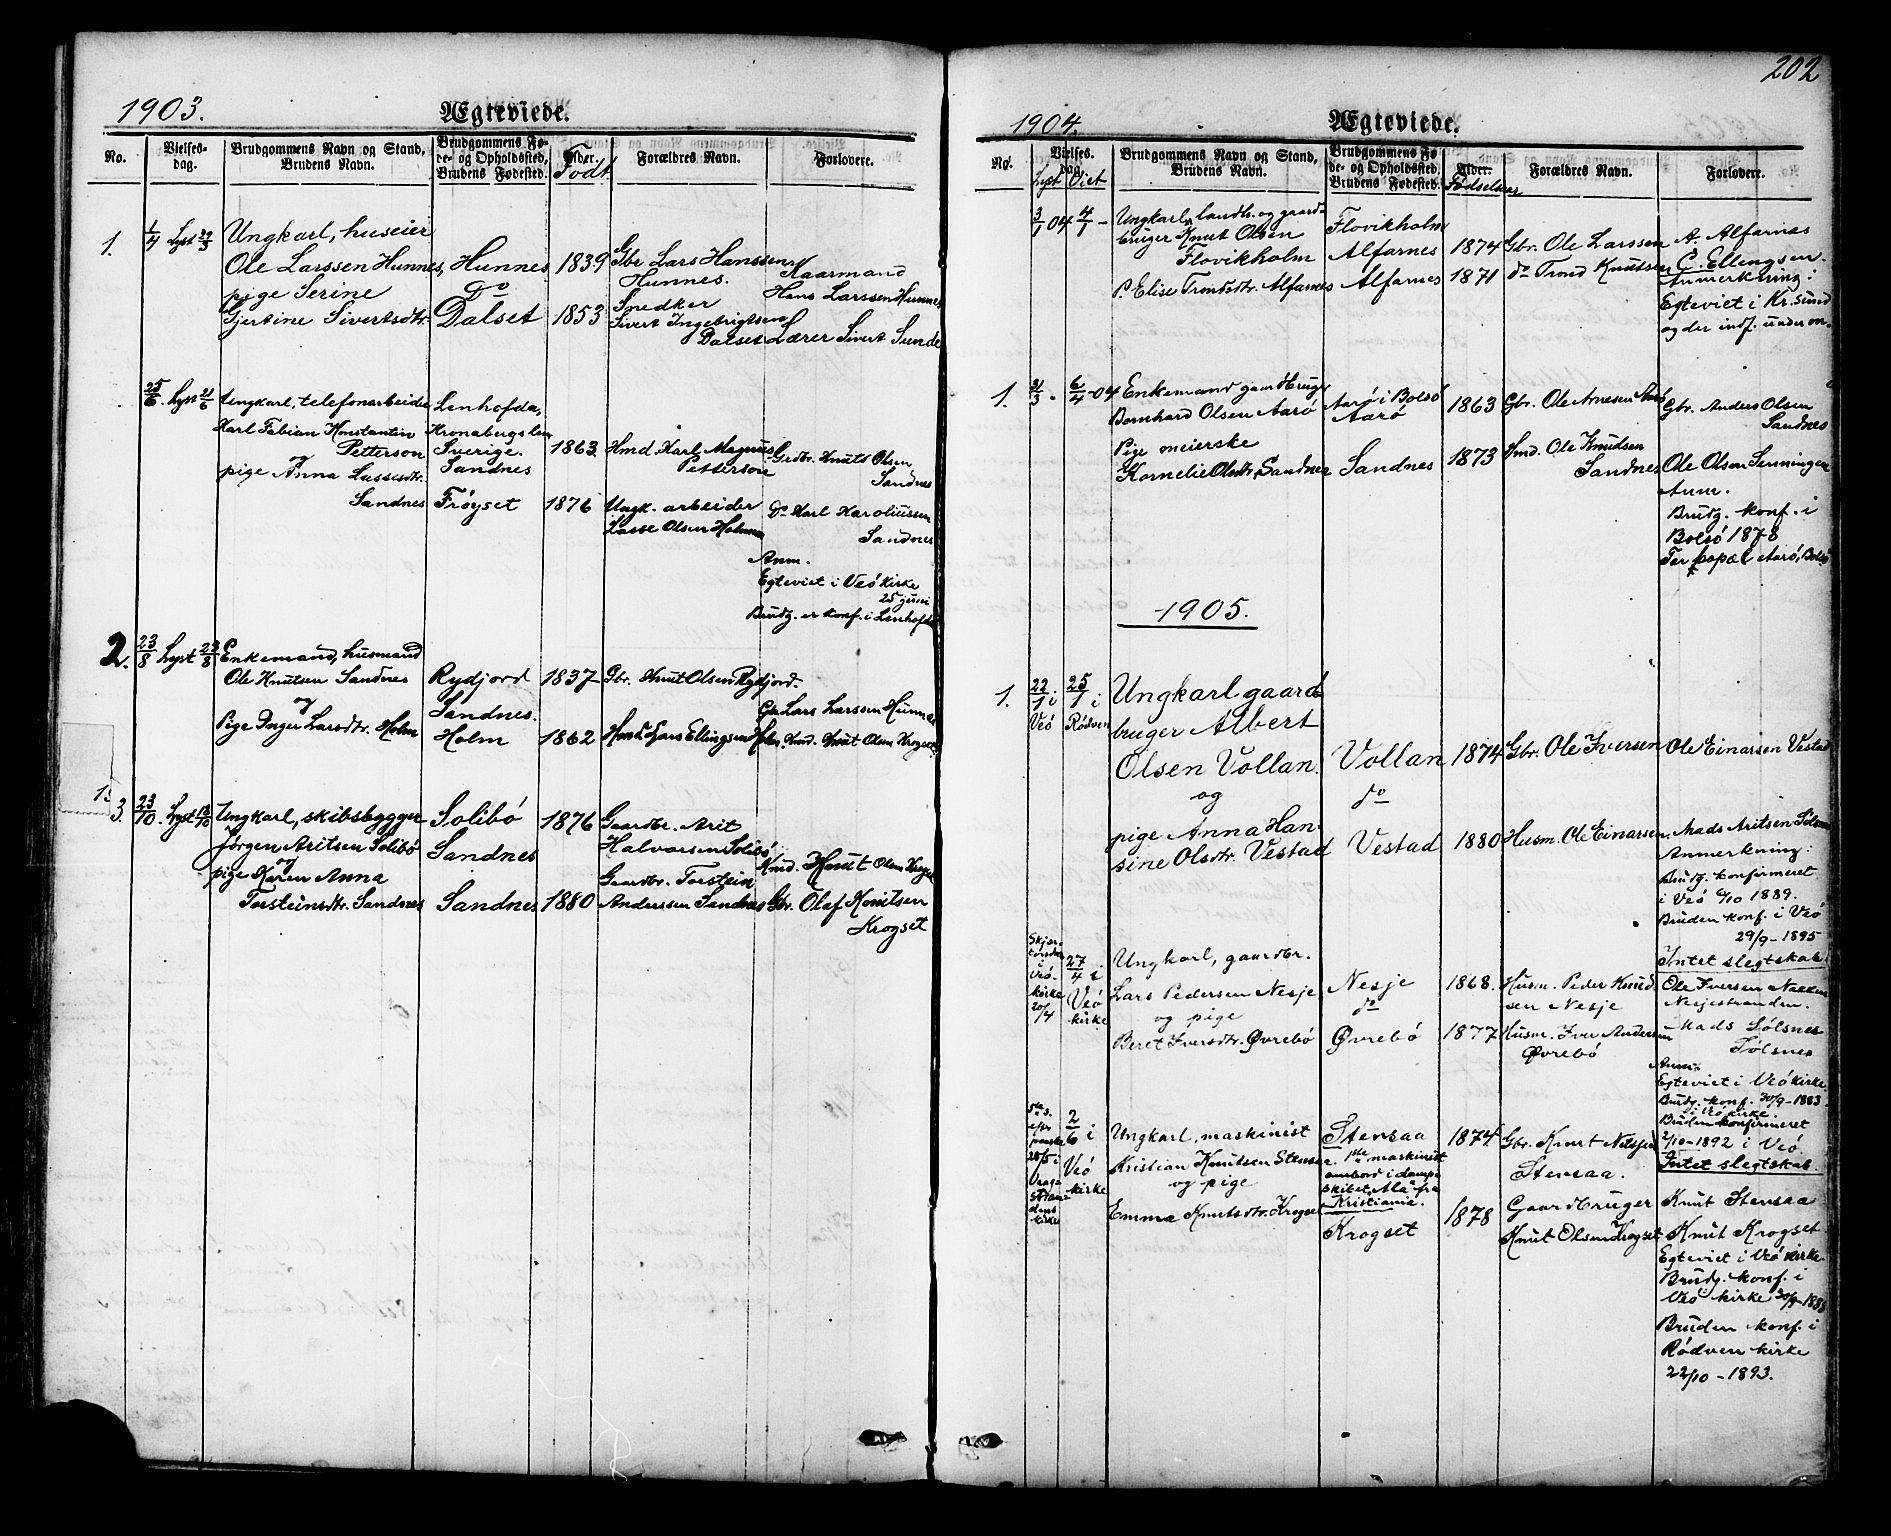 1903.
Ægteviede.
No.
Vielses-
dag.
Brudgommens Navn og Stand,
Brudens Navn.
Brudgommens Fø-
de- og Opholdssted,
Brudens Fødested.
Alder.
Født
Forældres Navn.
Forlovere.
1.
1/4 Lyst 29/3
Ungkarl, huseier
Ole Larssen Hunnes,
pige Serine
Gjertine Sivertsdtr.
Hunnes
Do
Dalset
1839
1853
Gbr Lars Hanssen
Hunnes.
Snedker
Sivert Ingebrigtsen
Dalset
Kaarmand
Hans Larssen Hunnes
Lærer Sivert Sunde
25/6. Lyst 21/6
Ungkarl, telefonarbeider
Karl Fabian Konstantin
Petterson
og
pige Anna Lassesdtr.
Sandnes
Lenhofda,
Kronabergslen
Sverige.
Sandnes
Frøyset
1863.
1876
Hmd. Karl Magnus
Petterson
Ungk. arbeider
Lasse Olsen Holmem
Grdbr. Knut Olsen
Sandnes
Do Karl Karoliussen
Sandnes
Anm.
Egteviet i Veö kirke
25 juni
Brudg. er konf. i Lenhofda
2.
23/8 Lyst 23/8
Enkemand, husmand
Ole Knutsen Sandnes
og
Pige Inger Larsdtr. Holm
Rydjord
Sandnes.
Holm
1837
1862
Gbr. Knut Olsen Rydjord.
Hmd Lars Ellingsen Holm
Gbr Lars Larssen Hunnes
Hmd. Knut Olsen Krogset.
3.
23/10. Lyst 18/10
Ungkarl, skibsbygger
Jörgen Aritsen Solibö
og
pige Karen Anna
Torsteinsdtr. Sandnes
Solibö
Sandnes
Sandnes
1876
1880
Gaardbr. Arit
Halvorsen Solibö
Gaardbr. Torstein
Anderssen Sandnes
Hmd. Knut Olsen Krogset
Gbr. Olaf Knutsen
Krogset
202
1904.
Ægteviede.
No.
Vielses-
dag.
Lyst Viet
Brudgommens Navn og Stand,
Brudens Navn.
Brudgommens Fø-
de- og Opholdssted,
Brudens Fødested.
Alder.
Fødselsaar
Forældres Navn.
Forlovere.
3/1 04 4/1 -
Ungkarl, landh. og gaard-
bruger Knut Olsen
Flovikholm
p. Elise Trondsdtr. Alfarnes
Flovikholm
Alfarnes
Alfarnes
1874
1871
Gbr. Ole Larssen
do Trond Knutsen
A. Alfarnes
C. Ellengsen.
Anmerkning:
Egteviet i Kr.sund
og der indf. under no.
1.
31/3 - 6/4 - 04
Enkemand gaardbruger
Bernhard Olsen Aarö
Pige meierske
Kornelie Olsdtr. Sandnes
Aarö i Bolsö
Aarö
Sandnes
1863
1873
Gbr. Ole Arnesen Aarö
Hmd. Ole Knudsen
Sandnes
Gbr. Anders Olsen
Sandnes
Ole Olsen Senningen
Anm.
Brudg. konf. i
Bolsö 1878
Far kopæl Aarö, Bolsö
1905.
1.
22/1 i
Veö
25/1 i
Rødven
Ungkarl gaard-
bruger Albert
Olsen Vollan.
og
pige Anna Han-
sine Olsdtr. Vestad
Vollan
do
Vestad
1874
1880
Gbr. Ole Iversen
Husm. Ole Einarsen.
Ole Einarsen Vestad
Mads Aritsen Sølsnes
Anmerkning:
Brudg. konfirmeret
i Veö 6/10 1889.
Bruden konf. i Veö
29/9 - 1895
Intet slegtskab.
Skjær-
torsdag
i
Veö-
kirke
20/4
27/4 i
Veö
kirke
Ungkarl, gaardbr.
Lars Pedersen Nesje
og pige
Beret Iversdtr. Øvrebö
Nesje
do
Øvrebö
1868.
1877
Husm. Peder Knud-
sen Nesje
Husm. Iver Andersen
Øvrebö
Ole Iversen Nakken
Nesjestranden.
Mads Sølsnes
Sølsnes
Anm.
Egteviet i Veö kirke.
Brudg. konf. 30/9 - 1883
i Veö kirke.
Bruden konfirmeret
2/10 - 1892 i Veö
Intet slegtskab.
5te s.
efter
paaske
28/5 i
Vaage
stran-
dens
kirke
2/6 i
Veö
kirke
Ungkarl, maskinist
Kristian Knutsen Stensaa
og pige
Emma Knutsdtr. Krogset
Stensaa
1ste maskinist
ombord i damp-
skibet "Ala" fra
Kristiania.
Krogset
1874
1878
Gbr. Knut Nilsen
Stensaa.
Gaardbruger
Knut Olsen Krogset
Knut Stensaa
Knut Krogset
Egteviet i Veö kirke
Brudg. konf. i
Veö kirke 30/9 - 1888
Bruden konf. i
Rødven kirke
22/10 - 1893.